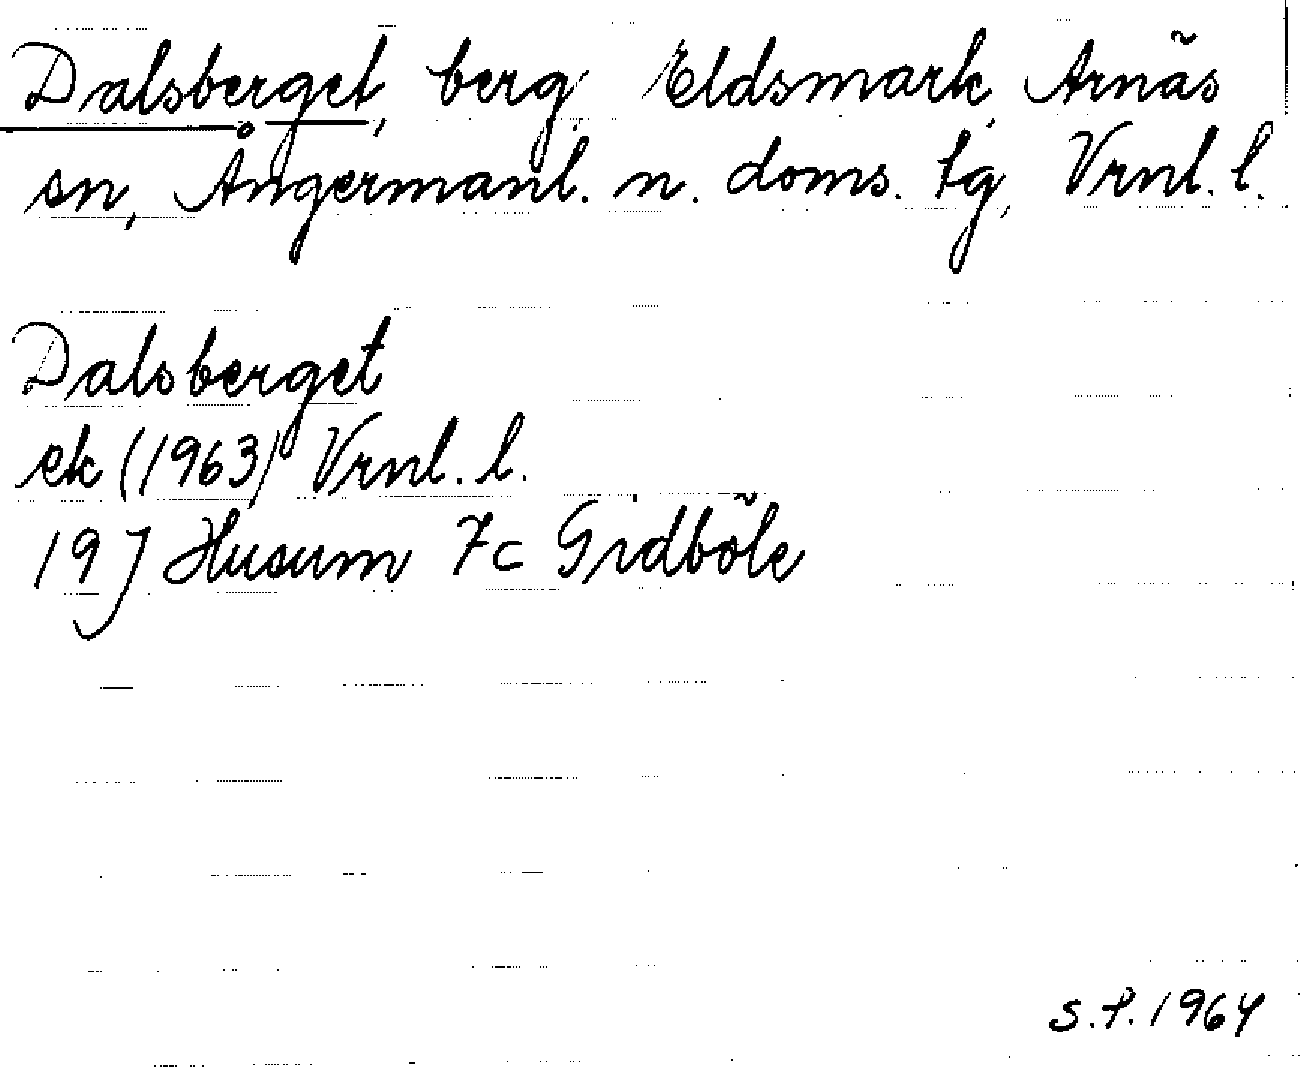 Dalsberget, berg, Eldsmark, Arnäs
sn, Ångermanl. n. doms. tg, Vrnl. l.
Dalsberget
ek (1963) Vrnl. l.
19 J Husum 7c Gidböle
S.P. 1964